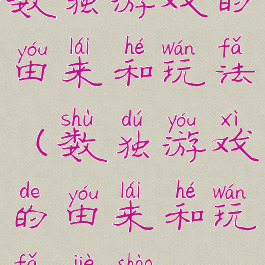 数独游戏的
yóu lái hé wán fǎ
由来和玩法
shù dú yóu xì
（数独游戏
de yóu lái hé wán
的由来和玩
fǎ jiè shào